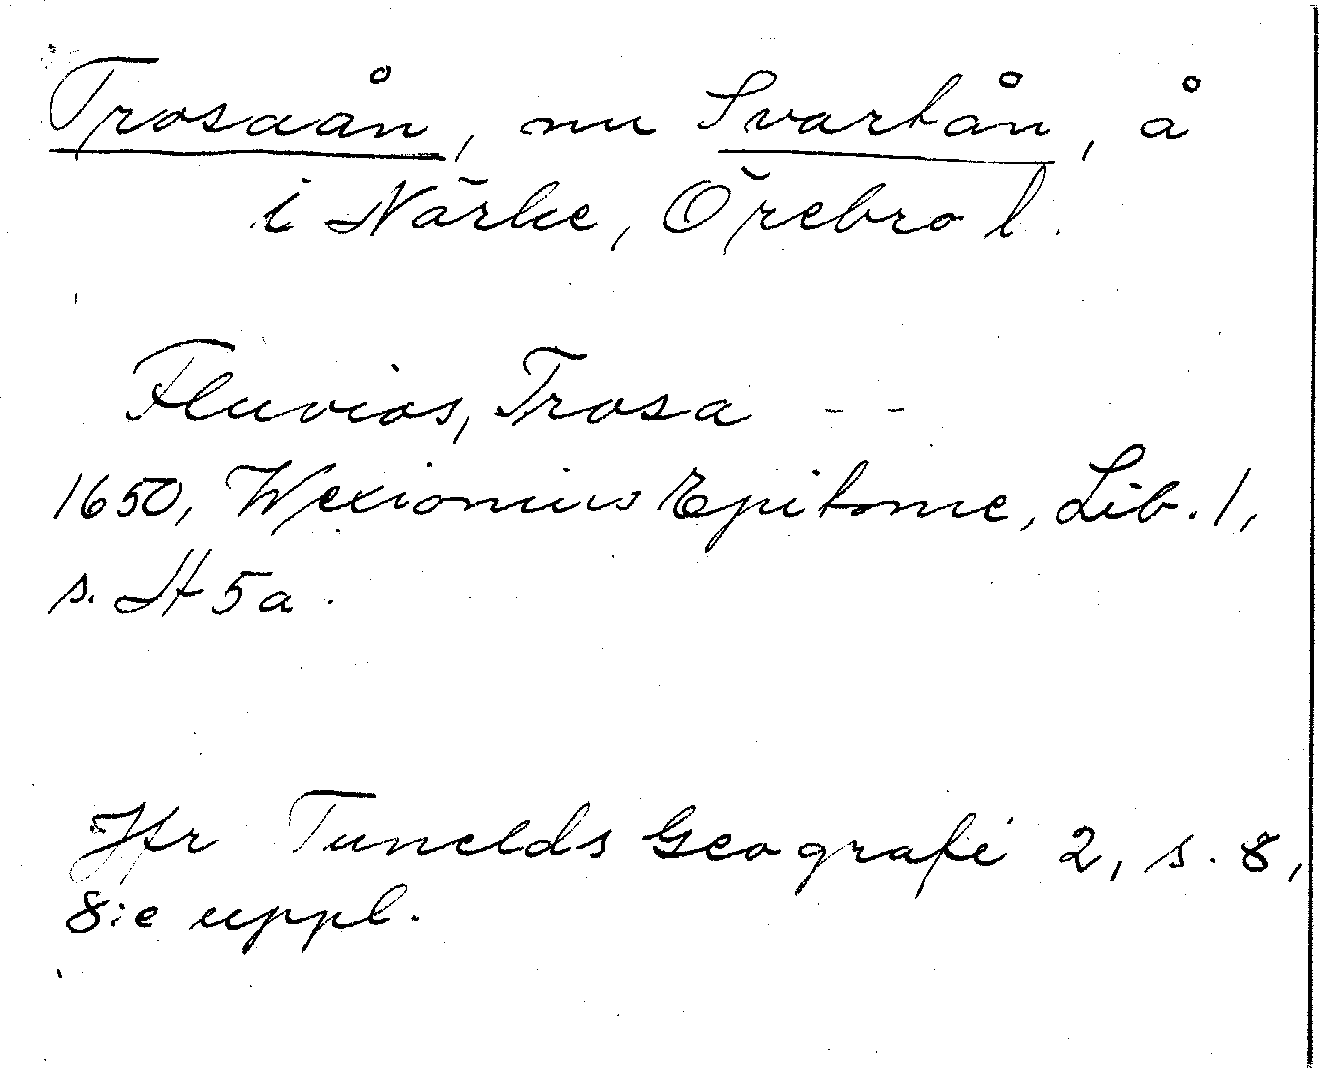 Trosaån, nu Svartån, å
i Närke, Örebro l.
Fluvios, Trosa - -
1650, Wexionius Epitome, Lib. 1,
s. H 5a.
Jfr Tunelds Geografi 2, s. 8,
8:e uppl.